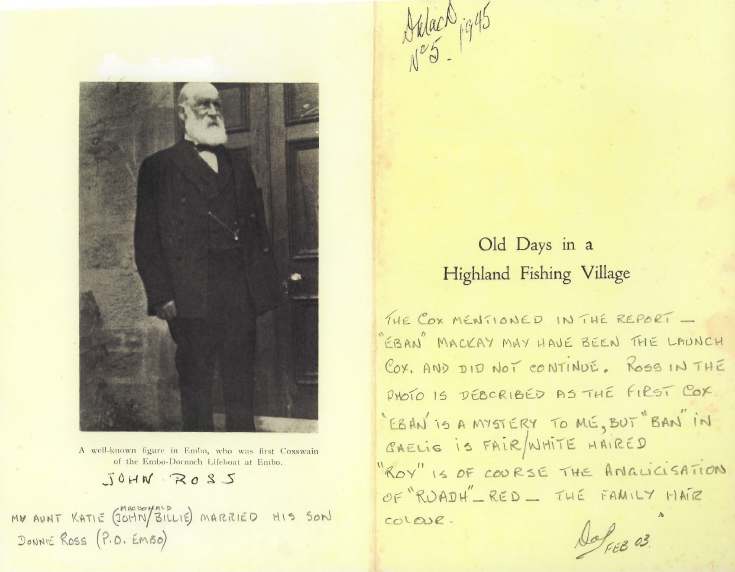 A well-known figure in Embo, who was first Coxswain
of the Embo-Dornoch Lifeboat at Embo.
JOHN ROSS
MACDONALD
MY AUNT KATIE (JOHN/BILLIE) MARRIED HIS SON
DONNIE ROSS (P.O. EMBO)
No 5. 1945
Old Days in a
Highland Fishing Village
THE COX MENTIONED IN THE REPORT —
"EBAN" MACKAY MAY HAVE BEEN THE LAUNCH
COX. AND DID NOT CONTINUE. ROSS IN THE
PHOTO IS DESCRIBED AS THE FIRST COX.
'EBAN' IS A MYSTERY TO ME, BUT "BAN" IN
GAELIG IS FAIR/WHITE HAIRED
"ROY" IS OF COURSE THE ANGLICISATION
OF "RUADH" — RED — THE FAMILY HAIR
COLOUR.
FEB 03.